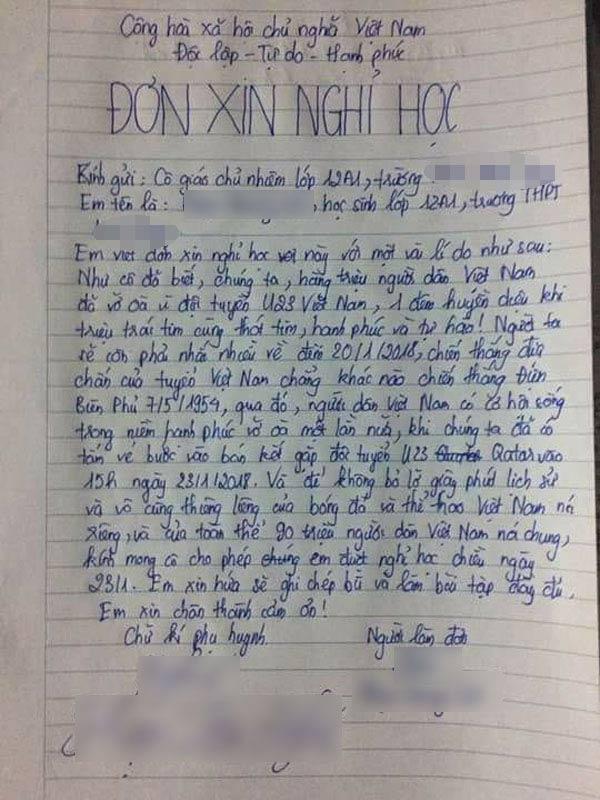 Cộng hoà xã hội chủ nghĩa Việt Nam
Độc lập - Tự do - Hạnh phúc
ĐƠN XIN NGHỈ HỌC
Kính gửi: Cô giáo chủ nhiệm lớp 12A1, trường
Em tên là: , học sinh lớp 12A1, trường THPT
Em viết đơn xin nghỉ học này với một vài lí do như sau:
Như cô đã biết, chúng ta, hàng triệu người dân Việt Nam
đã vỡ oà vì đội tuyển U23 Việt Nam, 1 đêm huyền diệu khi
triệu trái tim cùng thót tim, hạnh phúc và tự hào! Người ta
sẽ còn phải nhắc nhiều về đêm 20/1/2018, chiến thắng địa
chấn của tuyển Việt Nam chẳng khác nào chiến thắng Điện
Biên Phủ 7/5/1954, qua đó, người dân Việt Nam có cơ hội sống
trong niềm hạnh phúc vỡ oà một lần nữa, khi chúng ta đã có
tấm vé bước vào bán kết gặp đội tuyển U23 Qatar vào
15h ngày 23/1/2018. Và để không bỏ lỡ giây phút lịch sử
và vô cùng thiêng liêng của bóng đá và thể thao Việt Nam nói
riêng, và của toàn thể 90 triệu người dân Việt Nam nói chung,
kính mong cô cho phép chúng em được nghỉ học chiều ngày
23/1. Em xin hứa sẽ ghi chép bù và làm bài tập đầy đủ.
Em xin chân thành cảm ơn!
Chữ kí phụ huynh Người làm đơn